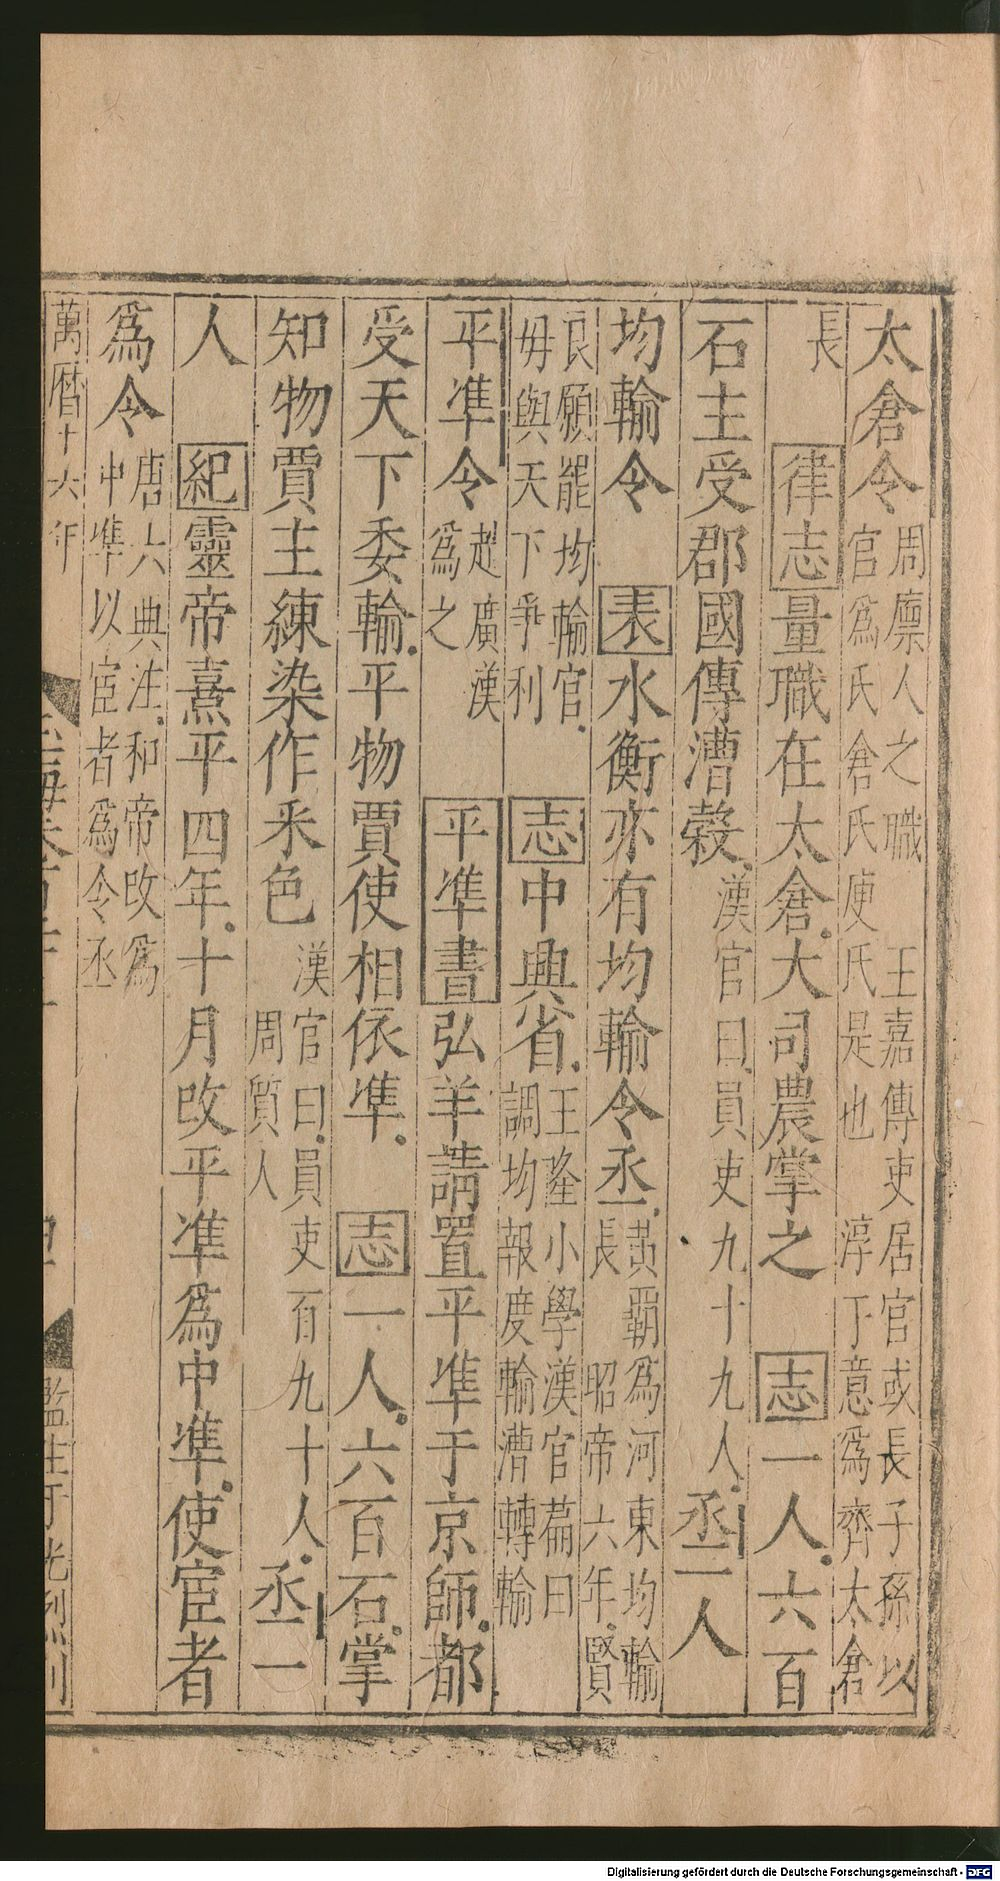 太倉令周廩人之職 王嘉傳吏居官或長子孫以
官爲氏倉氏庾氏是也 淳于意爲齊太倉
長 律志量職在太倉大司農掌之 志一人六百
石主受郡國傳漕穀漢官曰員吏九十九人丞一人
均輸令 表水衡亦有均輸令丞黃霸爲河東均輸
長 昭帝六年賢
良願罷均輸官
毋與天下爭利 志中興省王隆小學漢官篇曰
調均報度輸漕轉輸
平準令趙廣漢
爲之 平準書弘羊請置平準于京師都
受天下委輸平物賈使相依準 志一人六百石掌
知物賈主練染作采色漢官曰員吏百九十人
周質人丞一
人 紀靈帝熹平四年十月改平準爲中準使宦者
爲令唐六典注和帝改爲
中準以宦者爲令丞
萬曆十六年
監生于光烈刊
Digitalisierung gefördert durch die Deutsche Forschungsgemeinschaft - DFG